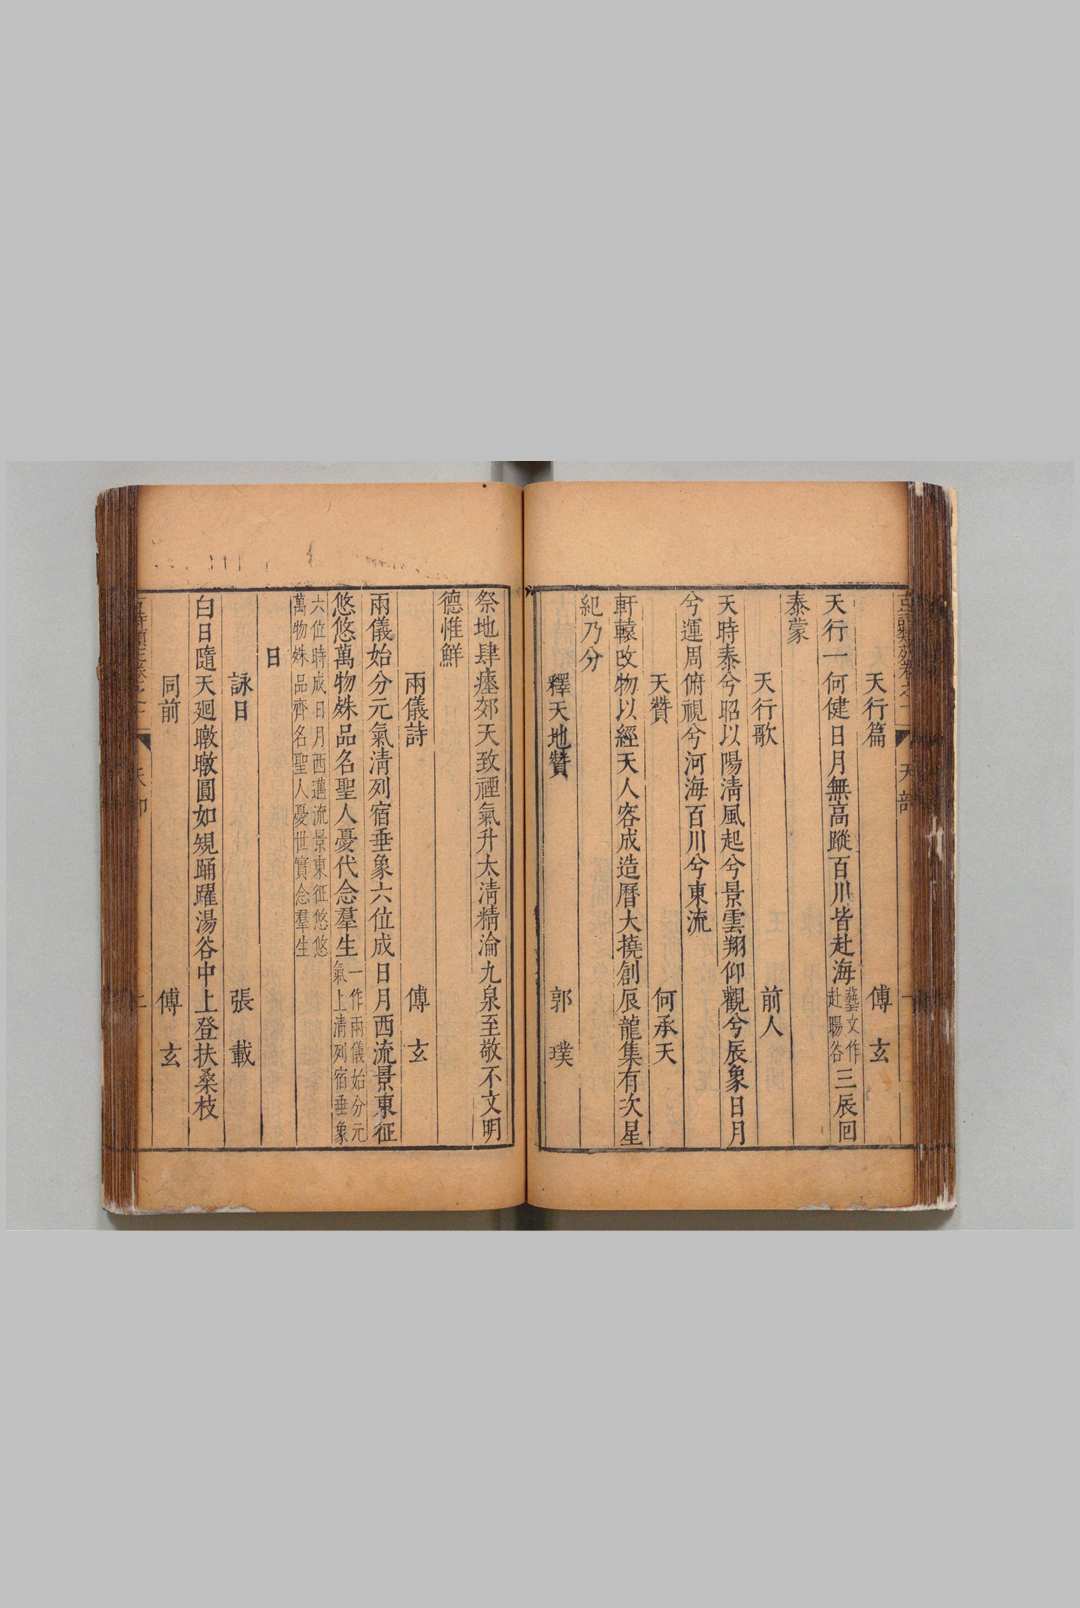 天行篇 傅玄
天行一何健日月無高蹤百川皆赴海藝文作赴暘谷三辰回
泰蒙
天行歌 前人
天時泰兮昭以陽清風起兮景雲翔仰觀兮辰象日月
兮運周俯視兮河海百川兮東流
天贊 何承天
軒轅改物以經天人容成造曆大撓創辰龍集有次星
紀乃分
釋天地贊 郭璞
祭地肆瘞郊天致禋氣升太清精淪九泉至敬不文明
德惟鮮
兩儀詩 傅玄
兩儀始分元氣清列宿垂象六位成日月西流景東征
悠悠萬物殊品名聖人憂代念羣生一作兩儀始分元氣上清列宿垂象
六位時成日月西邁流景東征悠悠萬物姝品齊名聖人憂世實念羣生
日
詠日 張載
白日隨天廻暾暾圓如規踊躍湯谷中上登扶桑枝
同前 傅玄